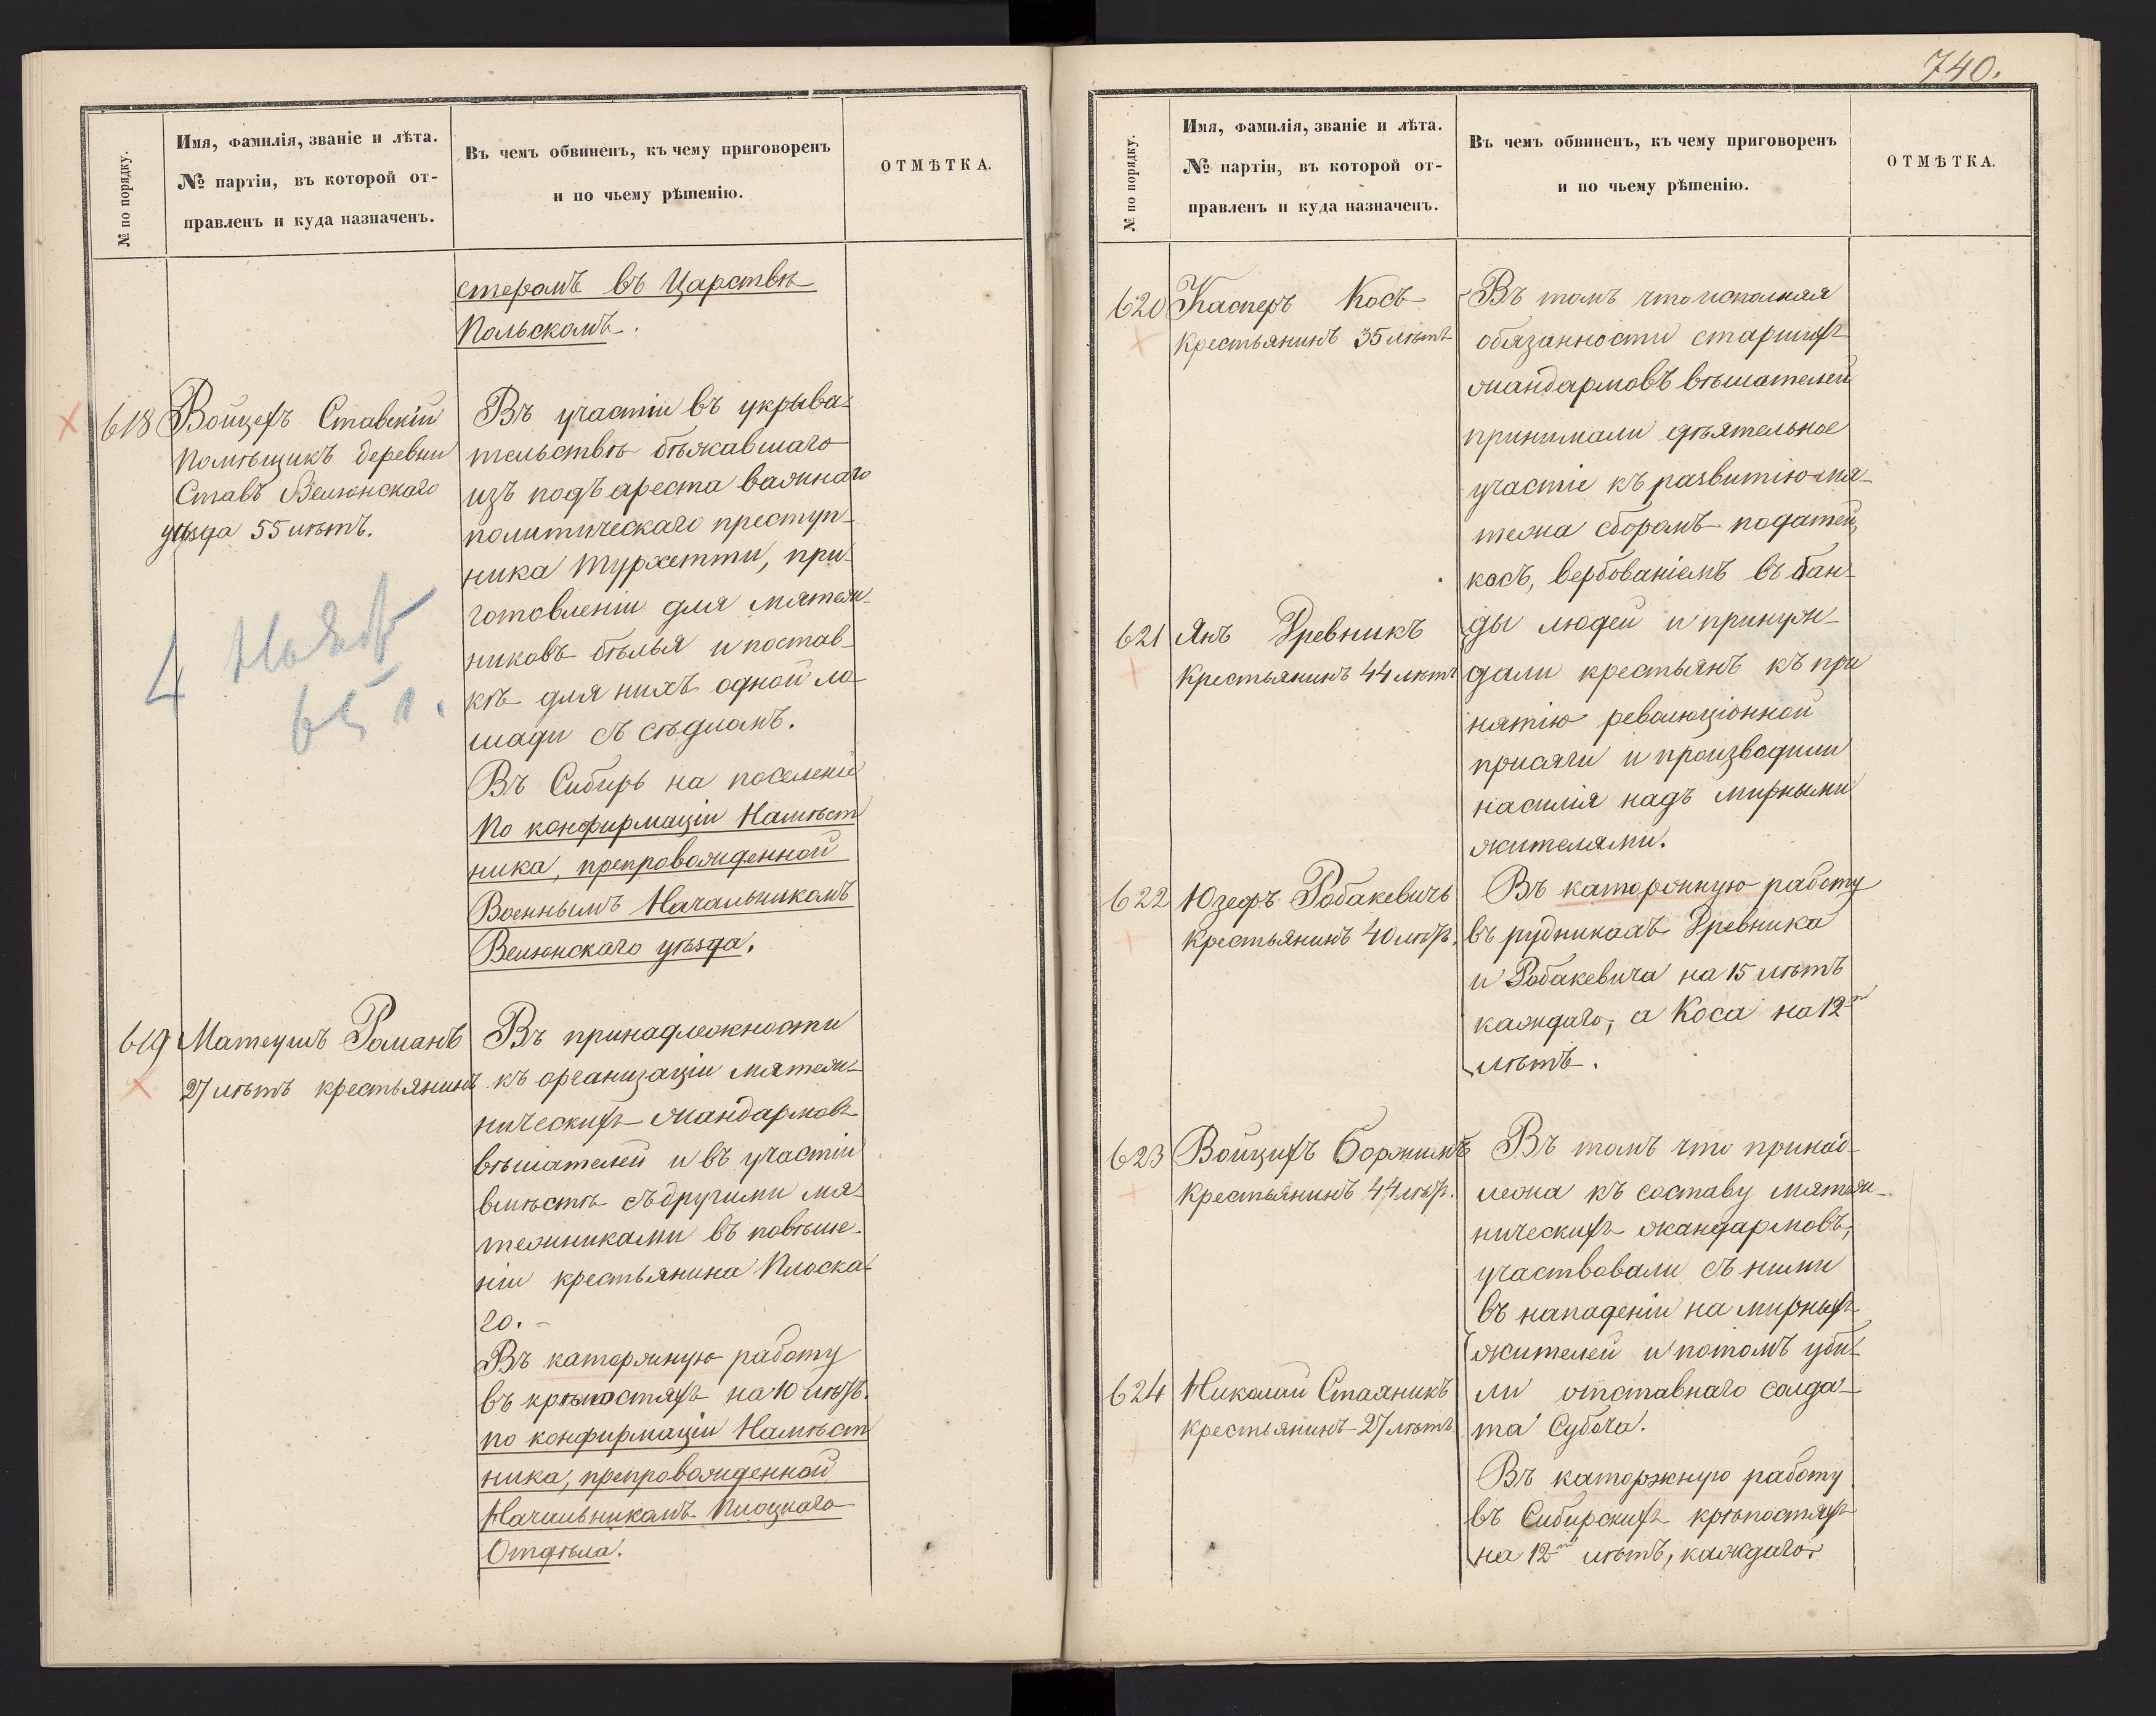 № по порядку.
Имя, фамилія, званіе и лѣта.
№ партіи, въ которой от-
правленъ и куда назначенъ.
Въ чемъ обвиненъ, къ чему приговоренъ
и по чьему рѣшенію.
ОТМѢТКА.
стеромъ въ Царствѣ
Польскомъ.
618
Войцехъ Ставскій
помѣщикъ деревни
Ставъ Велюнскаго
уѣзда 55 лѣтъ.
Въ участіи въ укрыва-
тельствѣ бѣжавшаго
изъ подъ ареста важнаго
политическаго преступ-
ника Турхетти, при-
готовленіи для мятеж-
никовъ бѣлья и постав-
кѣ для нихъ одной ло-
шади съ сѣдломъ.
Въ Сибирь на поселеніе
По конфирмаціи Намѣст
ника, препровожденной
Военнымъ Начальникомъ
Велюнскаго уѣзда.
4
619
Матеушъ Романъ
27 лѣтъ крестьянинъ
Въ принадлежности
къ организаціи мятеж-
ническихъ жандармовъ
вѣшателей и въ участіи
вмѣстѣ съ другими мя-
тежниками въ повѣше-
ніи крестьянина Плоска-
го.-
Въ каторжную работу
въ крѣпостяхъ на 10 лѣтъ.
по конфирмаціи Намѣст
ника, препровожденной
Начальникомъ Плоцкаго
Отдѣла.
740.
№ по порядку.
Имя, фамилія, званіе и лѣта.
№ партіи, въ которой от-
правленъ и куда назначенъ.
Въ чемъ обвиненъ, къ чему приговоренъ
и по чьему рѣшенію.
ОТМѢТКА.
620
Касперъ Косъ
крестьянинъ 35 лѣтъ
621
Янъ Древникъ
крестьянинъ 44 лѣтъ
622
Юзефъ Робакевичъ
крестьянинъ 40 лѣтъ.
Въ томъ что исполняя
обязанности старшихъ
жандармовъ вѣшателей
принимали дѣятельное
участіе къ развитію мя-
тежа сборомъ податей,
косъ, вербованіемъ въ бан-
ды людей и принуж-
дали крестьянъ къ при
нятію революціонной
присяги и производили
насилія надъ мирными
жителями.
Въ каторжную работу
въ рудникахъ Древника
и Робакевича на 15 лѣтъ
каждаго, а Коса на 12-ть
лѣтъ.
623
Войцихъ
крестьянинъ 44 лѣтъ.
624
Николай
крестьянинъ 27 лѣтъ
Въ томъ что принад-
лежа къ составу мятеж-
ническихъ жандармовъ,
участвовали съ ними
въ нападеніи на мирныхъ
жителей и потомъ уби-
ли отставнаго солда-
та Субоча.
Въ каторжную работу
въ Сибирскихъ крѣпостяхъ
на 12-ть лѣтъ, каждаго.